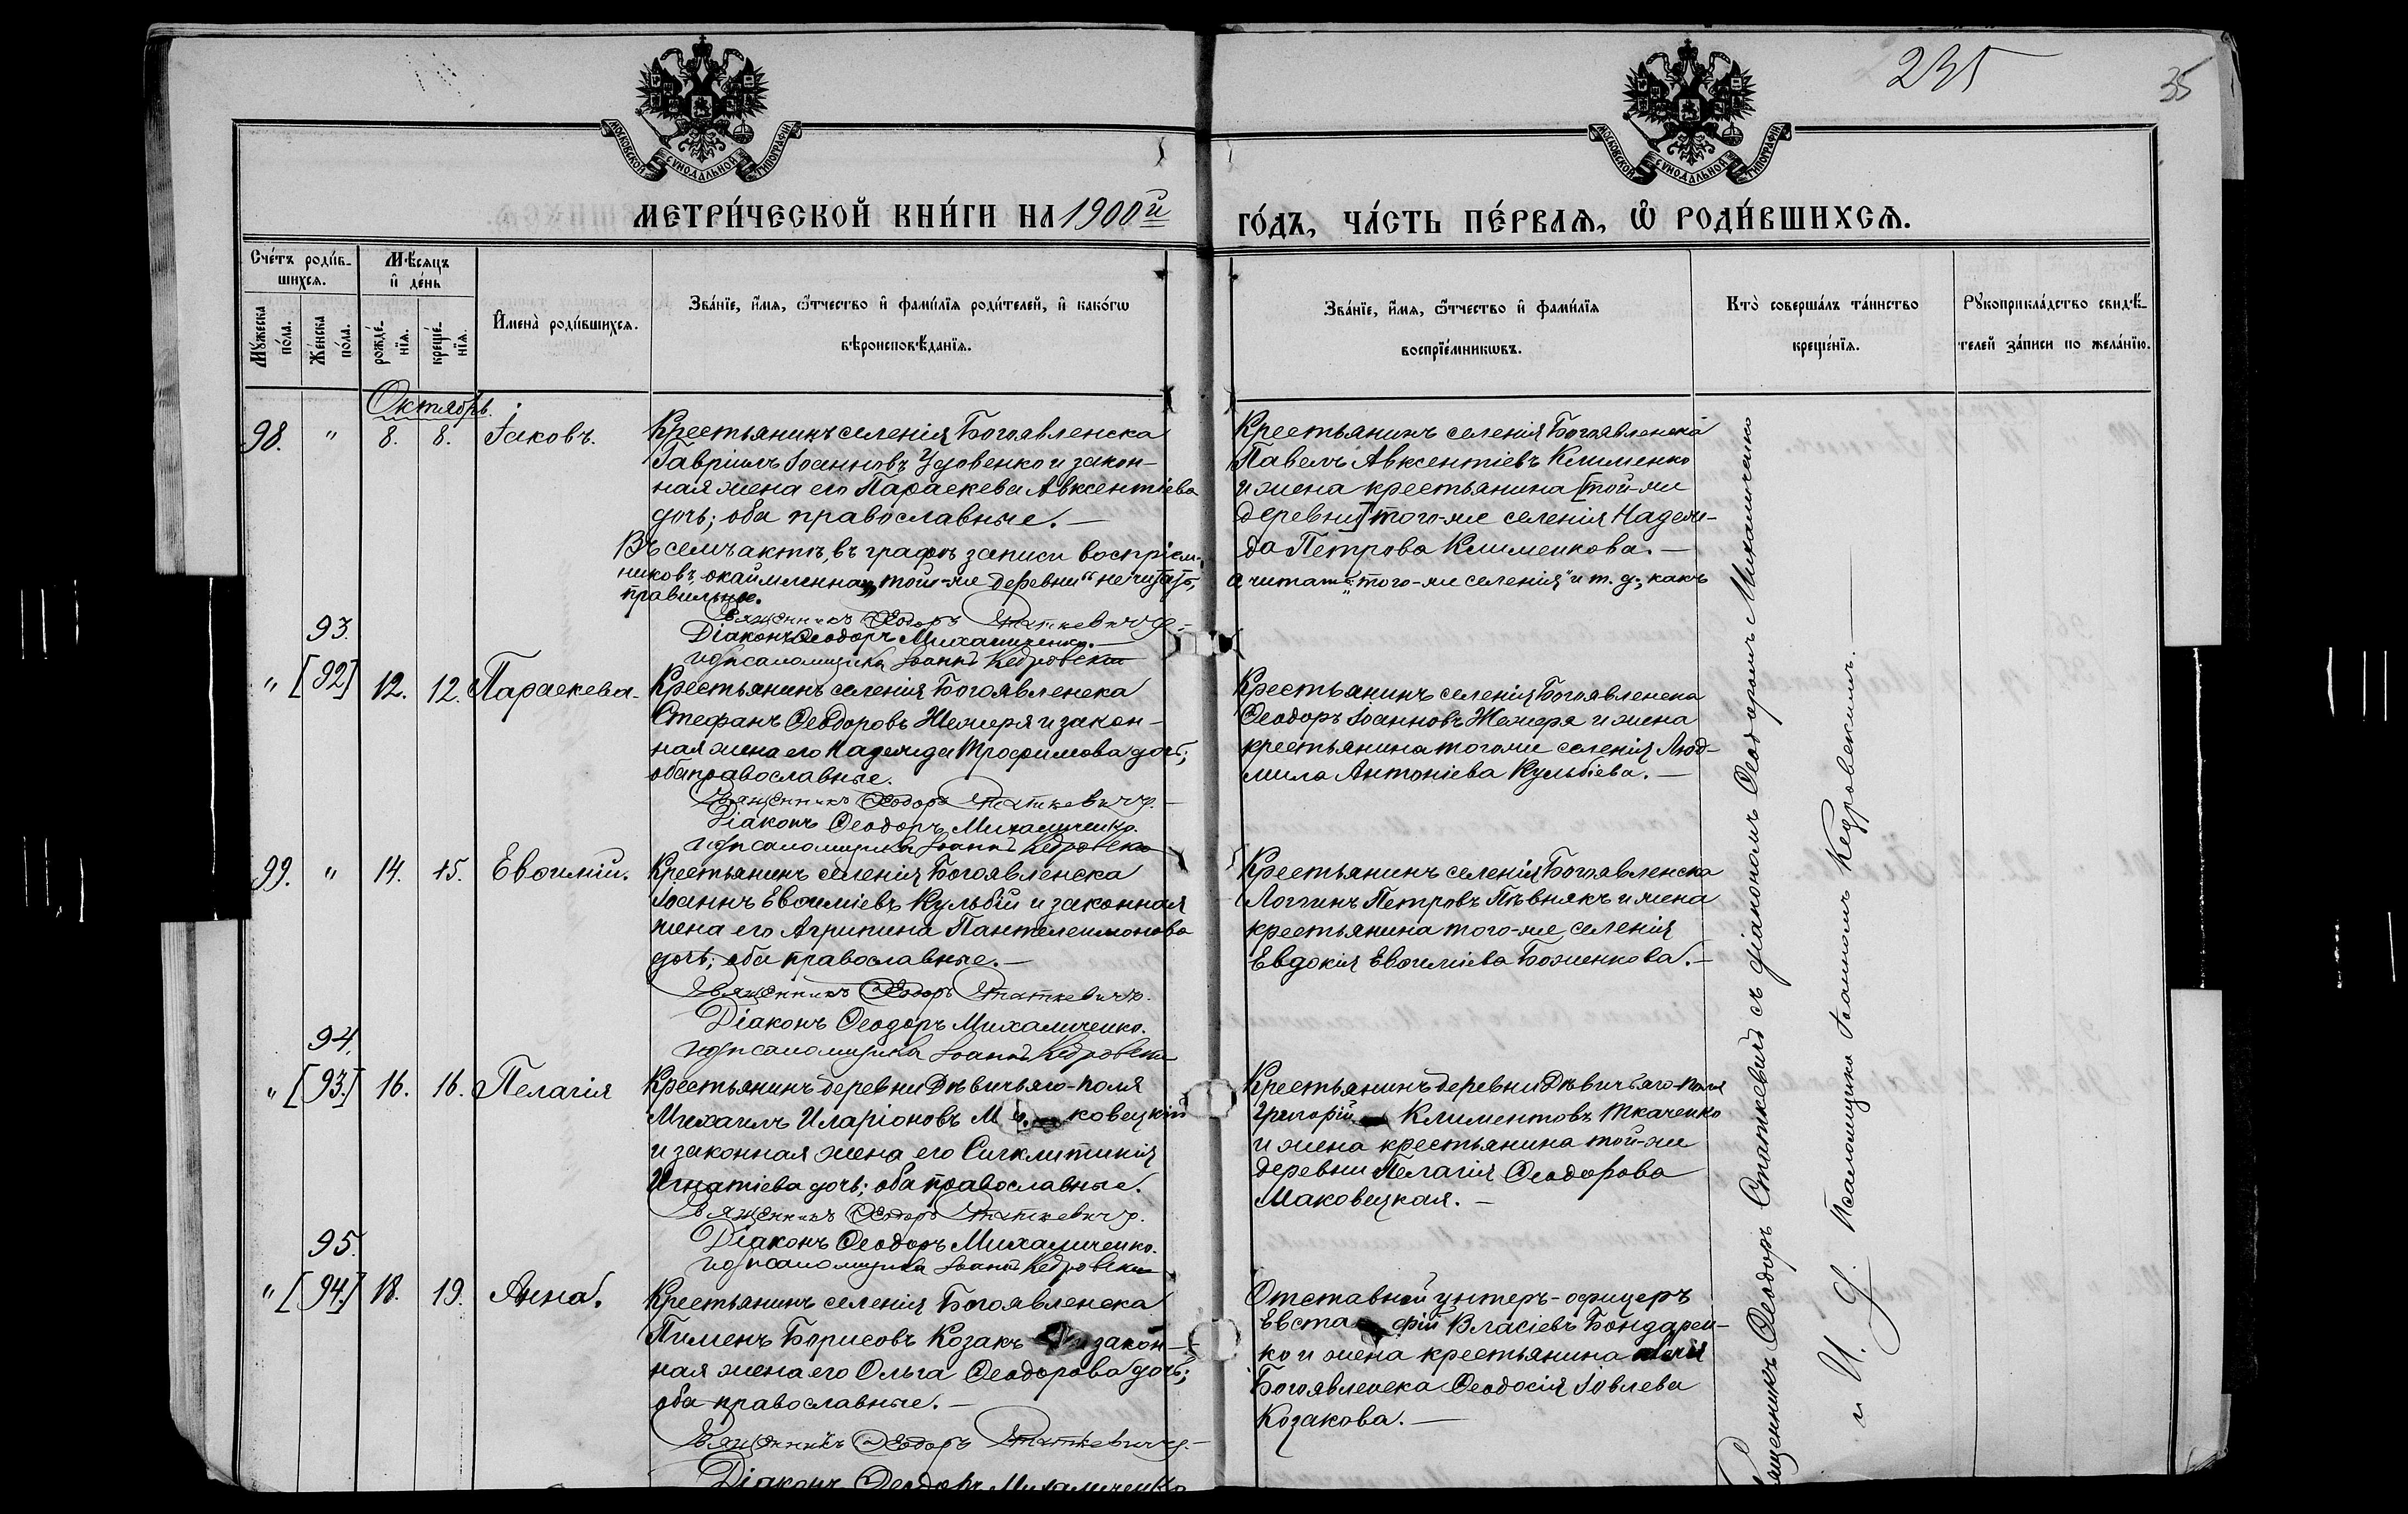 235
35
МОСКОВСКОЙ СѴНОДАЛЬНОЙ ТИПОГРАФІИ
МОСКОВСКОЙ СѴНОДАЛЬНОЙ ТИПОГРАФІИ
МЕТРИ́ЧЕСКОЙ КНИ́ГИ НА 1900й ГО́ДЪ, ЧА́СТЬ ПЕ́РВАѦ, Ѽ РОДИ́ВШИХСѦ.
Сче́тъ роди́в-
шихсѧ.
Мꙋ́жеска по́ла.
Же́нска по́ла.
Мѣ́сѧцъ
и҆ де́нь
рожде́-
нїѧ.
креще́-
нїѧ.
И҆мена̀ роди́вшихсѧ.
Зва́нїе, и҆́мѧ, ѻ҆́тчество и҆ фами́лїѧ роди́телей, и҆ како́гѡ
вѣроисповѣ́данїѧ.
Зва́нїе, и҆́мѧ, ѻ҆́тчество и҆ фами́лїѧ
воспрїе́мникѡвъ.
Кто̀ соверша́лъ та́инство
креще́нїѧ.
Рꙋкоприкла́дство свидѣ́-
телей за́писи по жела́нїю.
Октябрь.
98. " 8. 8. Іаковъ.
Крестьянинъ селенія Богоявленска
Гавріилъ Іоанновъ Удовенко и закон-
ная жена его Параскева Авксентіева
дочь; оба православные. —
Въ семъ актѣ, въ графѣ записи воспріем-
никовъ, окаймленна „той-же деревни" не читать,
а читать „того-же селенія" и т. д., какъ
правильное.
Священникъ Ѳеодоръ Статкевичъ. —
Діаконъ Ѳеодоръ Михаличенко. —
И д псаломщика Іоаннъ Кедровскій
Крестьянинъ селенія Богоявленска
Павелъ Авксентіевъ Клименко
и жена крестьянина [той-же
деревни] того-же селенія Надеж-
да Петрова Клименкова. —
93.
" [92] 12. 12. Параскева.
Крестьянинъ селенія Богоявленска
Стефанъ Ѳеодоровъ Жежеря и закон-
ная жена его Надежда Трофимова дочь;
оба православные.
Священникъ Ѳеодоръ Статкевичъ. —
Діаконъ Ѳеодоръ Михаличенко.
И д псаломщика Іоаннъ Кедровскій
Крестьянинъ селенія Богоявленска
Ѳеодоръ Іоанновъ Жежеря и жена
крестьянина того же селенія Люд-
мила Антоніева Кульбіева. —
99. " 14. 15. Евѳимій.
Крестьянинъ селенія Богоявленска
Іоаннъ Евѳиміевъ Кульбій и законная
жена его Агрипина Пантелеимонова
дочь; оба православные. —
Священникъ Ѳеодоръ Статкевичъ.
Діаконъ Ѳеодоръ Михаличенко.
И д псаломщика Іоаннъ Кедровскій
Крестьянинъ селенія Богоявленска
Логгинъ Петровъ Пѣвнякъ и жена
крестьянина того-же селенія
Евдокія Евѳиміева Боженкова. —
94.
" [93.] 16. 16. Пелагія
Крестьянинъ деревни Дѣвичьяго-поля
Михаилъ Иларіоновъ М ковецкій
и законная жена его Сигклитикія
Игнатіева дочь; оба православные.
Священникъ Ѳеодоръ Статкевичъ.
Діаконъ Ѳеодоръ Михаличенко.
И д псаломщика Іоаннъ Кедровскій
Крестьянинъ деревни Дѣвичьяго-поля
Григорій Климентовъ Ткаченко
и жена крестьянина той-же
деревни Пелагія Ѳеодорова
Маковецкая. —
95.
" [94.] 18. 19. Анна.
Крестьянинъ селенія Богоявленска
Пименъ Борисовъ Козакъ и закон-
ная жена его Ольга Ѳеодорова дочь;
оба православные. —
Священникъ Ѳеодоръ Статкевичъ. —
Діаконъ Ѳеодоръ Михаличенко
Отставной унтеръ-офицеръ
Евста фій Власіевъ Бондарен-
ко и жена крестьянина
Богоявленска Ѳеодосія Іовлева
Козакова. —
Священникъ Ѳеодоръ Статкевичъ съ діакономъ Ѳеодоромъ Михаличенко
и И. д. Псаломщика Іоанномъ Кедровскимъ. —